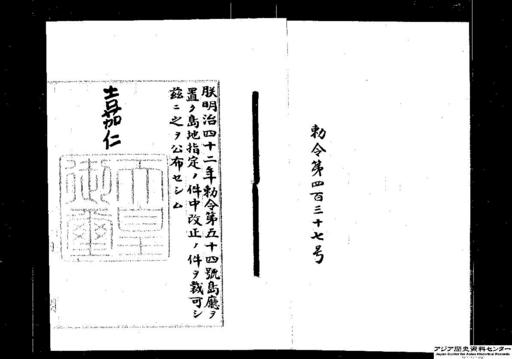 勅令第四百三十七号
朕明治四十二年勅令第五十四號島廳ヲ
置ク島地指定ノ件中改正ノ件ヲ裁可シ
茲ニ之ヲ公布セシム
嘉仁
天皇
御璽
アジア歴史資料センター
Japan Center for Asian Historical Records